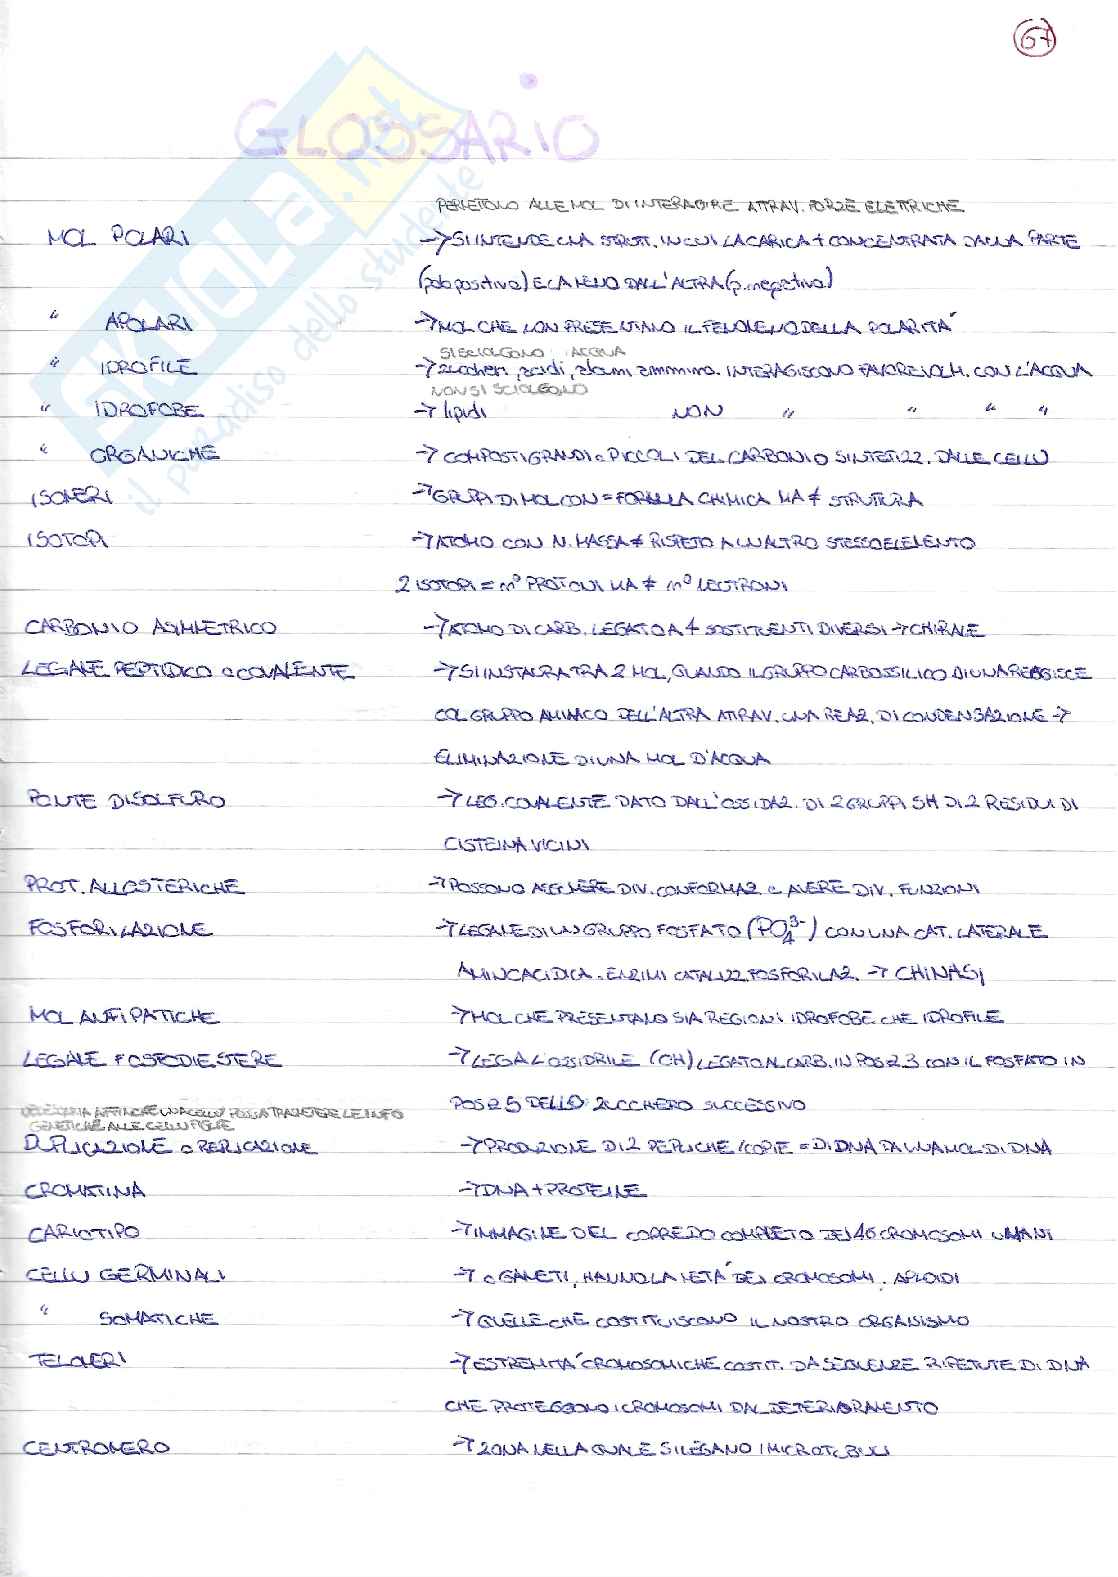 67
GLOSSARIO
SKUOLA.net
il paradiso dello studente
PERMETTONO ALLE MOL DI INTERAGIRE ATTRAV. FORZE ELETTRICHE
MOL POLARI → SI INTENDE UNA STRUTT. IN CUI LA CARICA + CONCENTRATA DA UNA PARTE
(polo positivo) E LA MENO DALL'ALTRA (p. negativo)
" APOLARI → MOL CHE NON PRESENTANO IL FENOMENO DELLA POLARITÀ
SI SCIOLGONO ACQUA
" IDROFILE → zuccheri, acidi, alcuni ammino. INTERAGISCONO FAVOREVOLM. CON L'ACQUA
NON SI SCIOLGONO
" IDROFOBE → lipidi NON " " " "
" ORGANICHE → COMPOSTI GRANDI o PICCOLI DEL CARBONIO SINTETIZZ. DALLE CELLU
ISOMERI → GRUPPI DI MOL CON = FORMULA CHIMICA MA ≠ STRUTURA
ISOTOPI → ATOMO CON N. MASSA ≠ RISPETO A UN ALTRO STESSO ELEMENTO
2 ISOTOPI = n° PROTONI MA ≠ n° NEUTRONI
CARBONIO ASIMMETRICO → ATOMO DI CARB. LEGATO A 4 SOSTITUENTI DIVERSI → CHIRALE
LEGAME PEPTIDICO o COVALENTE → SI INSTAURA TRA 2 MOL, QUANDO IL GRUPPO CARBOSSILICO DI UNA REAGISCE
COL GRUPPO AMINICO DELL'ALTRA ATTRAV. UNA REAZ. DI CONDENSAZIONE →
ELIMINAZIONE DI UNA MOL D'ACQUA
PONTE DISOLFURO → LEG. COVALENTE DATO DALL'OSSIDAZ. DI 2 GRUPPI SH DI 2 RESIDUI DI
CISTEINA VICINI
PROT. ALLOSTERICHE → POSSONO ASSUMERE DIV. CONFORMAZ. e AVERE DIV. FUNZIONI
FOSFORILAZIONE → LEGAME DI UN GRUPPO FOSFATO (PO₄³⁻) CON UNA CAT. LATERALE
AMINOACIDICA. ENZIMI CATALIZZ. FOSFORILAZ. → CHINASI
MOL ANFIPATICHE → MOL CHE PRESENTANO SIA REGIONI IDROFOBE CHE IDROFILE
LEGAME FOSFODIESTERE → LEGA L'OSSIDRILE (OH) LEGATO AL CARB. IN POSIZ 3 CON IL FOSFATO IN
POSIZ 5 DELLO ZUCCHERO SUCCESSIVO
NECESSARIA AFFINCHÉ UNA CELLU POSSA TRASMETTERE LE INFO
GENETICHE ALLE CELLU FIGLIE
DUPLICAZIONE o REPLICAZIONE → PRODUZIONE DI 2 REPLICHE/COPIE = DI DNA DA UNA MOL DI DNA
CROMATINA → DNA + PROTEINE
CARIOTIPO → IMMAGINE DEL CORREDO COMPLETO DEI 46 CROMOSOMI UMANI
CELLU GERMINALI → o GAMETI, HANNO LA METÀ DEI CROMOSOMI. APLOIDI
" SOMATICHE → QUELLE CHE COSTITUISCONO IL NOSTRO ORGANISMO
TELOMERI → ESTREMITÀ CROMOSOMICHE COSTIT. DA SEQUENZE RIPETUTE DI DNA
CHE PROTEGGONO I CROMOSOMI DAL DETERIORAMENTO
CENTROMERO → ZONA NELLA QUALE SI LEGANO I MICROTUBULI